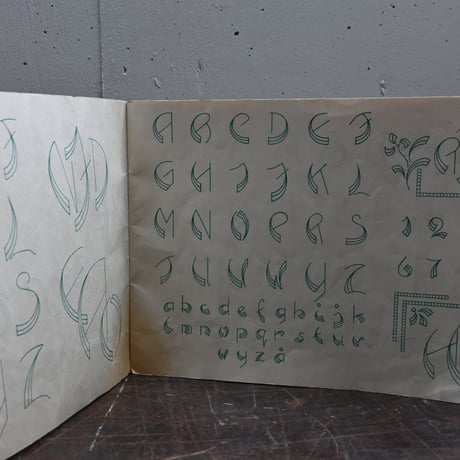 A B C D E F
G H I J K L
M N O P R S
T U V W Y Z
a b c d e f g h i j k
l m n o p q r s t u v
w y z å
1 2
6 7
L
S
Z